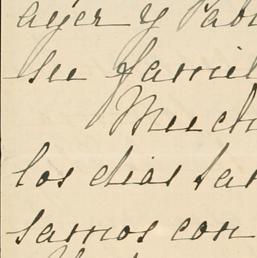 ayer y Pab
su famil
Much
los dias tan
samos con